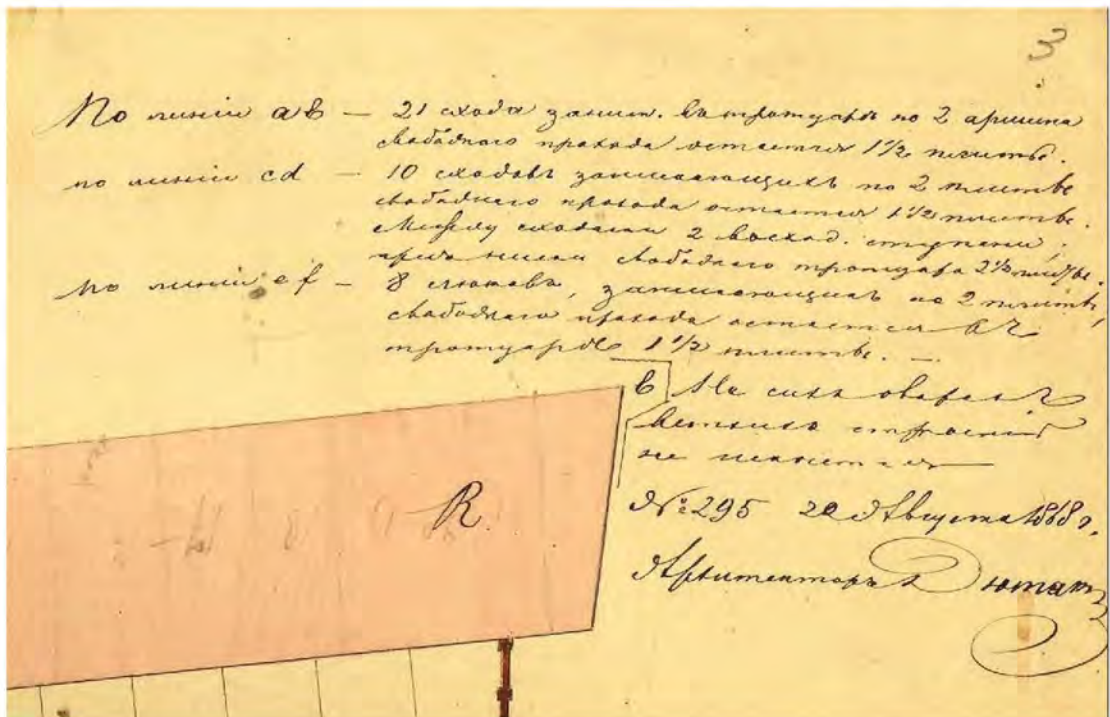 3
По линіи ab — 21 схода заним. въ тротуарѣ по 2 аршина
свободнаго прохода остается 1½ плиты.
по линіи cd — 10 сходовъ занимающихъ по 2 плиты
свободнаго прохода остается 1½ плиты.
Между сходами 2 восход. ступени,
свободнаго тротуара 2½ плиты.
По линіи ef — 8 занимающихъ по 2 плиты,
свободнаго прохода остается въ
тротуарѣ 1½ плиты. —
в На сихъ
ветхихъ строеній
не имеется
R.
№ 295 20 Августа 1868 г.
Архитекторъ